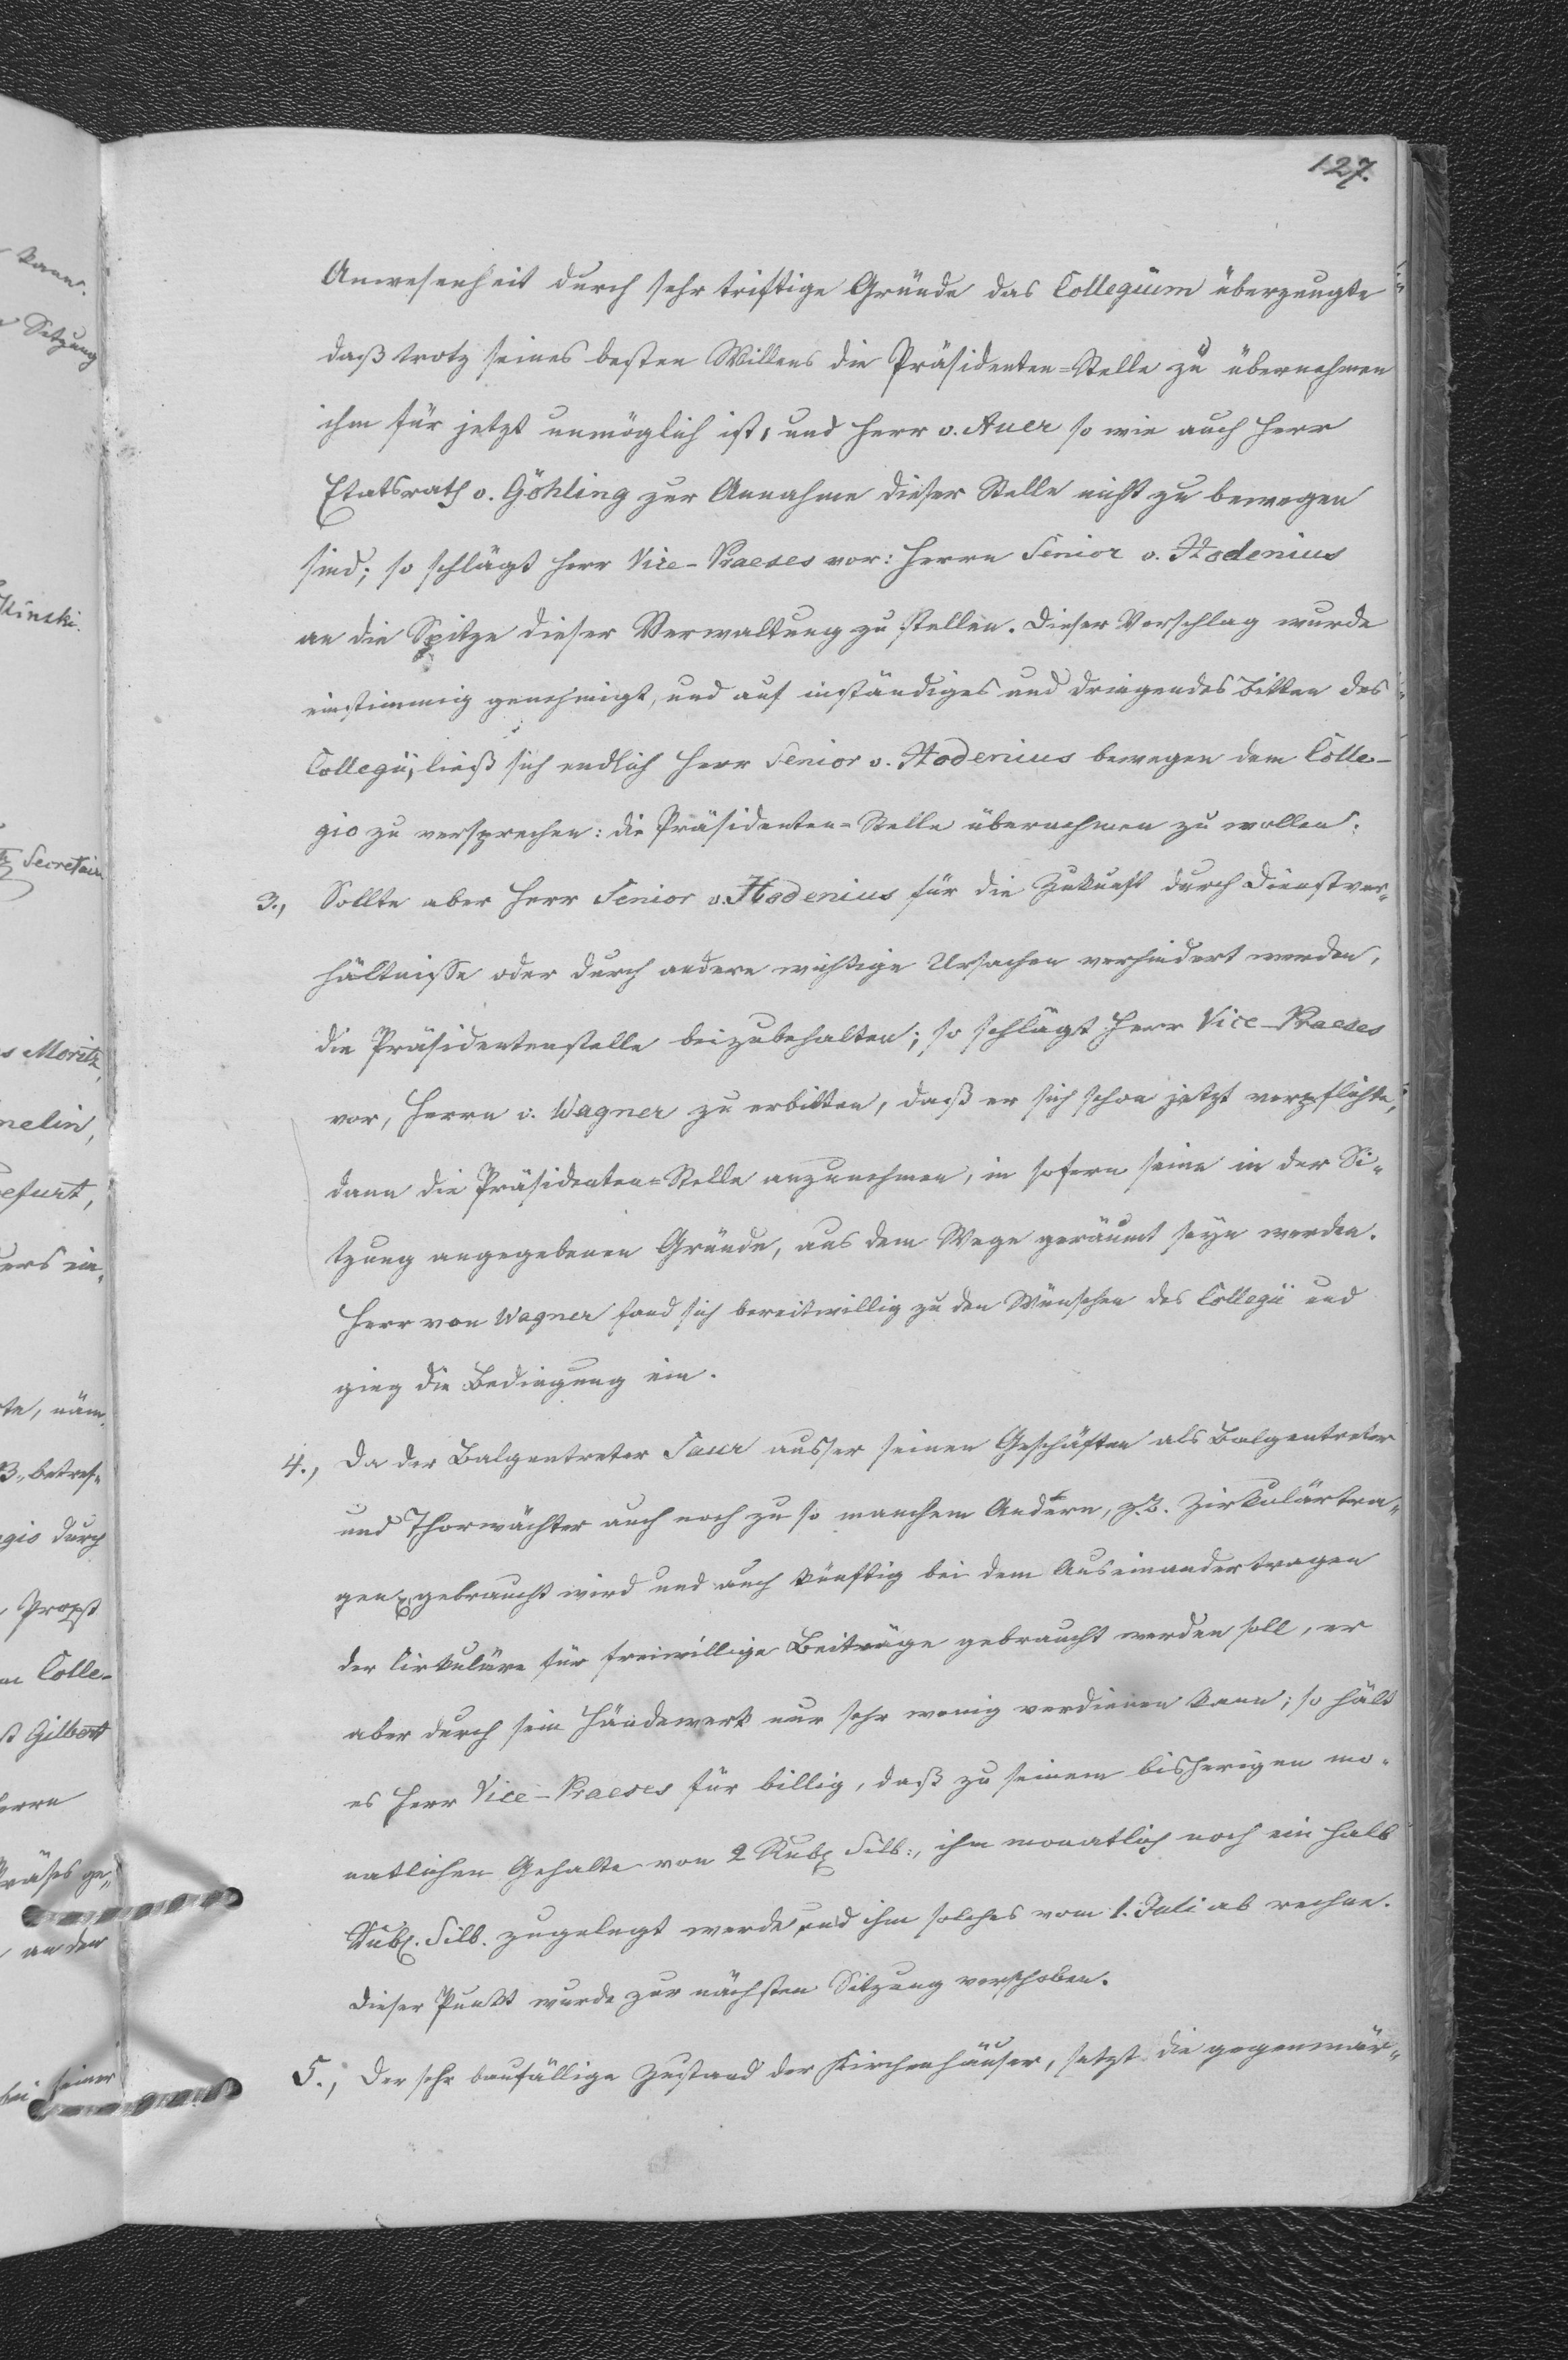 127.
Anwesenheit durch sehr triftige Gründe das Collegium überzeugte
daß trotz seines besten Willens die Präsidenten-Stelle zu übernehmen
ihm für jetzt unmöglich ist, und Herr v. Auer so wie auch Herr
Etatsrath v. Göhling zur Annahme dieser Stelle nicht zu bewegen
sind; so schlägt Herr Vice-Praeses vor: Herrn Senior v. Hodenius
an die Spitze dieser Verwaltung zu stellen. Dieser Vorschlag wurde
einstimmig genehmigt, und auf inständiges und dringendes Bitten des
Collegii, ließ sich endlich Herr Senior v. Hodenius bewegen dem Colle-
gio zu versprechen: die Präsidenten-Stelle übernehmen zu wollen.
3., Sollte aber Herr Senior v. Hodenius für die Zukunft durch Dienstver-
hältnisse oder durch andere wichtige Ursachen verhindert werden,
die Präsidentenstelle beizubehalten; so schlägt Herr Vice-Praeses
vor, Herrn v. Wagner zu erbitten, daß er sich schon jetzt verpflichte,
dann die Präsidenten-Stelle anzunehmen, in sofern seine in der Si-
tzung angegebenen Gründe, aus dem Wege geräumt seyn werden.
Herr von Wagner fand sich bereitwillig zu den Wünschen des Collegii und
ging die Bedingung ein.
4., Da der Balgentreter Saur ausser seinen Geschäften als Balgentreter
und Thorwächter auch noch zu so manchem Andern, z.B. Zirkulärtra-
gen gebraucht wird und auch künftig bei dem Auseinandertragen
der Cirkuläre für freiwillige Beiträge gebraucht werden soll, er
aber durch sein Handwerk nur sehr wenig verdienen kann; so hält
es Herr Vice-Praeses für billig, daß zu seinem bisherigen mo-
natlichen Gehalte von 2 Rub. Silb:, ihm monatlich noch ein halb
Rub. Silb. zugelegt werde, und ihm solches vom 1. Juli ab rechne.
Dieser Punkt wurde zur nächsten Sitzung verschoben.
5., Der sehr baufällige Zustand der Kirchenhäuser, setzt die gegenwär-